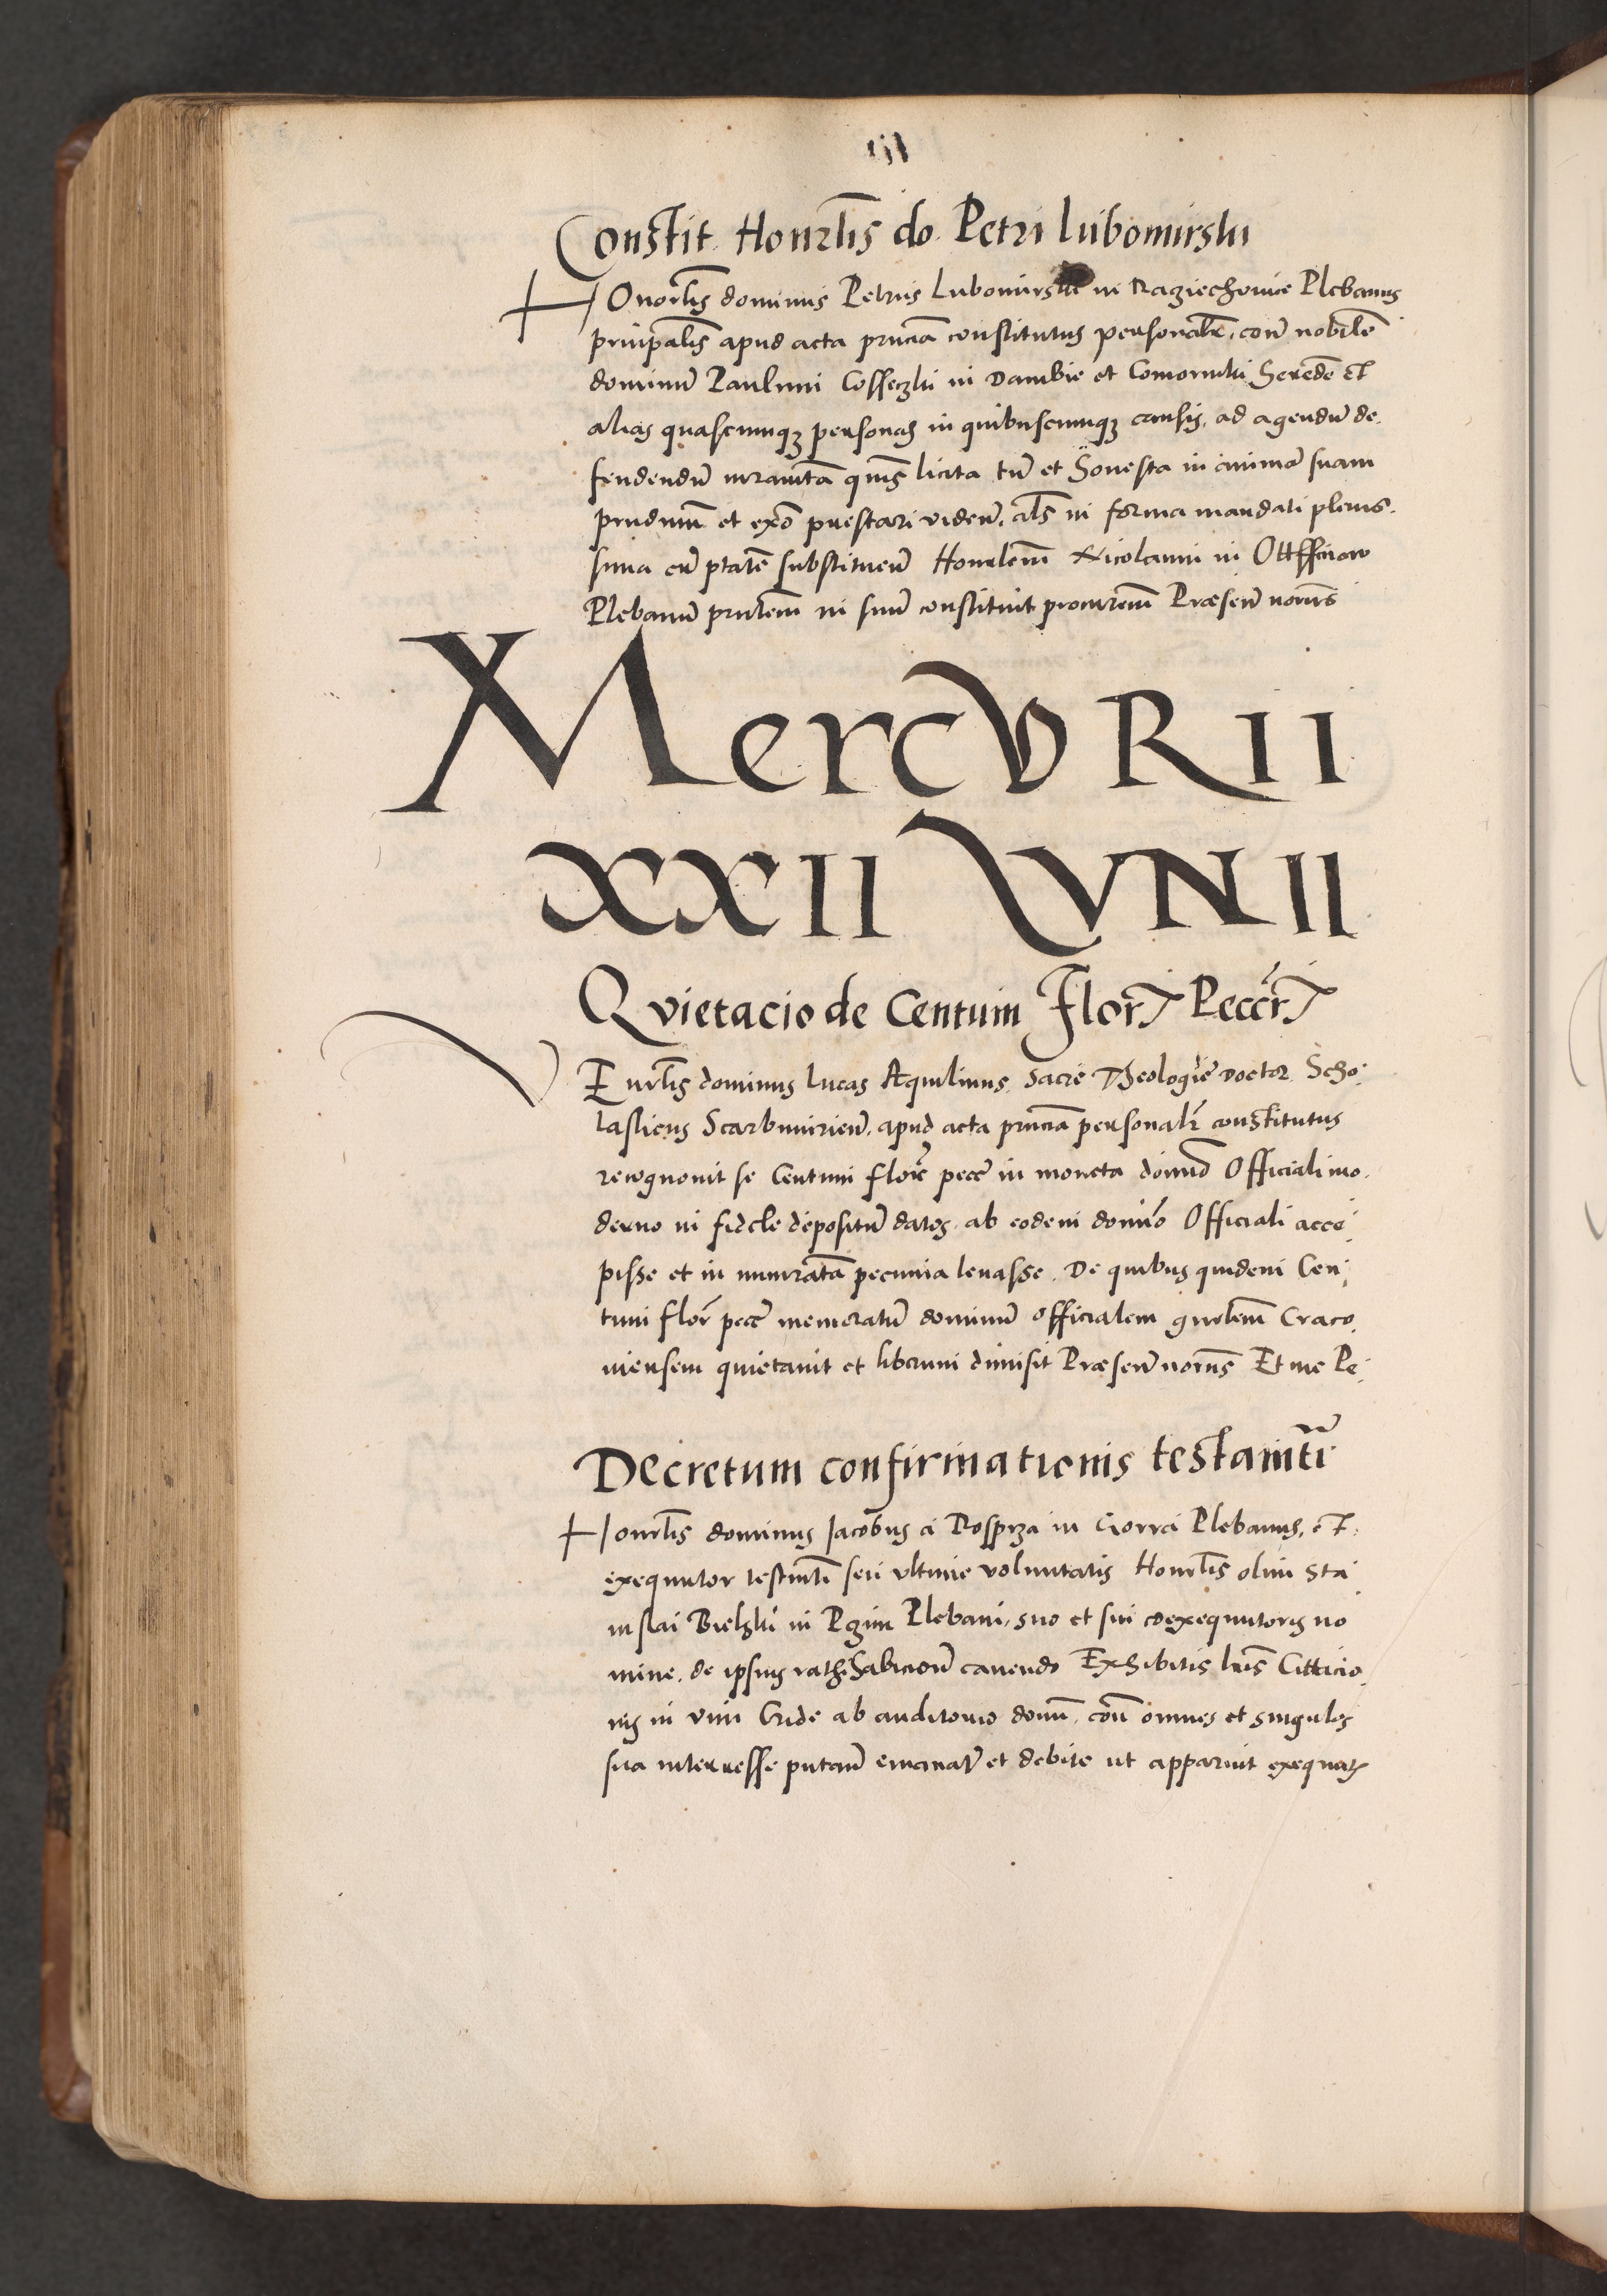 Constit. Honrlis do. Petri Lubomirski
HOnorlis dominus Petrus Lubomirski in Raziechovice Plebanus
prinpalis apud acta prncia constitutus personalr, con nobilem
dominum Paulum Cosseczki in Dambie et Comorniki Heredem et
alias quascumqz personas in quibuscumqz causis, ad agendum de,
fendendum iuramta quevis licita tn et honesta in animam suam
prndum et exo prestari viden, als in forma mandati plenis,
sima cum ptate substituen Honrlem Nicolaum in
Plebanum prntem in suum constituit procurem Præsen norus
MercVRII
XXII IVNII
Qvietacio de Centum Flor Peccr
VEnrlis dominus Lucas Aquilinus Sacre Theologie Doctor Scho,
lasticus Scarbimirien, apud acta prncia personalr constitutus
recognovit se Centum flore pecc in moneta domno Officiali mo,
derno in fidele depositum datos, ab eodem domino Officiali acce,
pisse et in numrata pecunia levasse. De quibus quidem Cen,
tum flor pecc memoratum dominum Officialem gnrlem Craco,
viensem quietavit et liberum dimisit Præsen norus Et me Pe,
Decretum confirmationis testamti
Honrlis dominus Jacobus a Rosprza in Gorra Plebanus, et
exequutor testmti seu ultime voluntatis Honrlis olim Sta
nislai Bielski in Pzim Plebani, suo et sui coexequutoris no
mine, de ipsius rathihabicion cavendo Exhibitis lris Cittacio,
nis in vim Cride ab auditorio domni, con omnes et singulos
sua interresse putan emanat et debite ut apparuit exequut